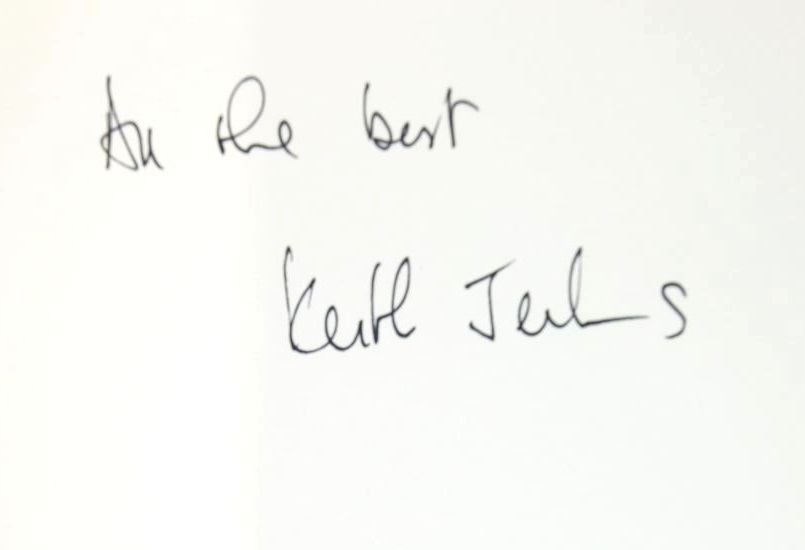 All the best
Keith Jenkins